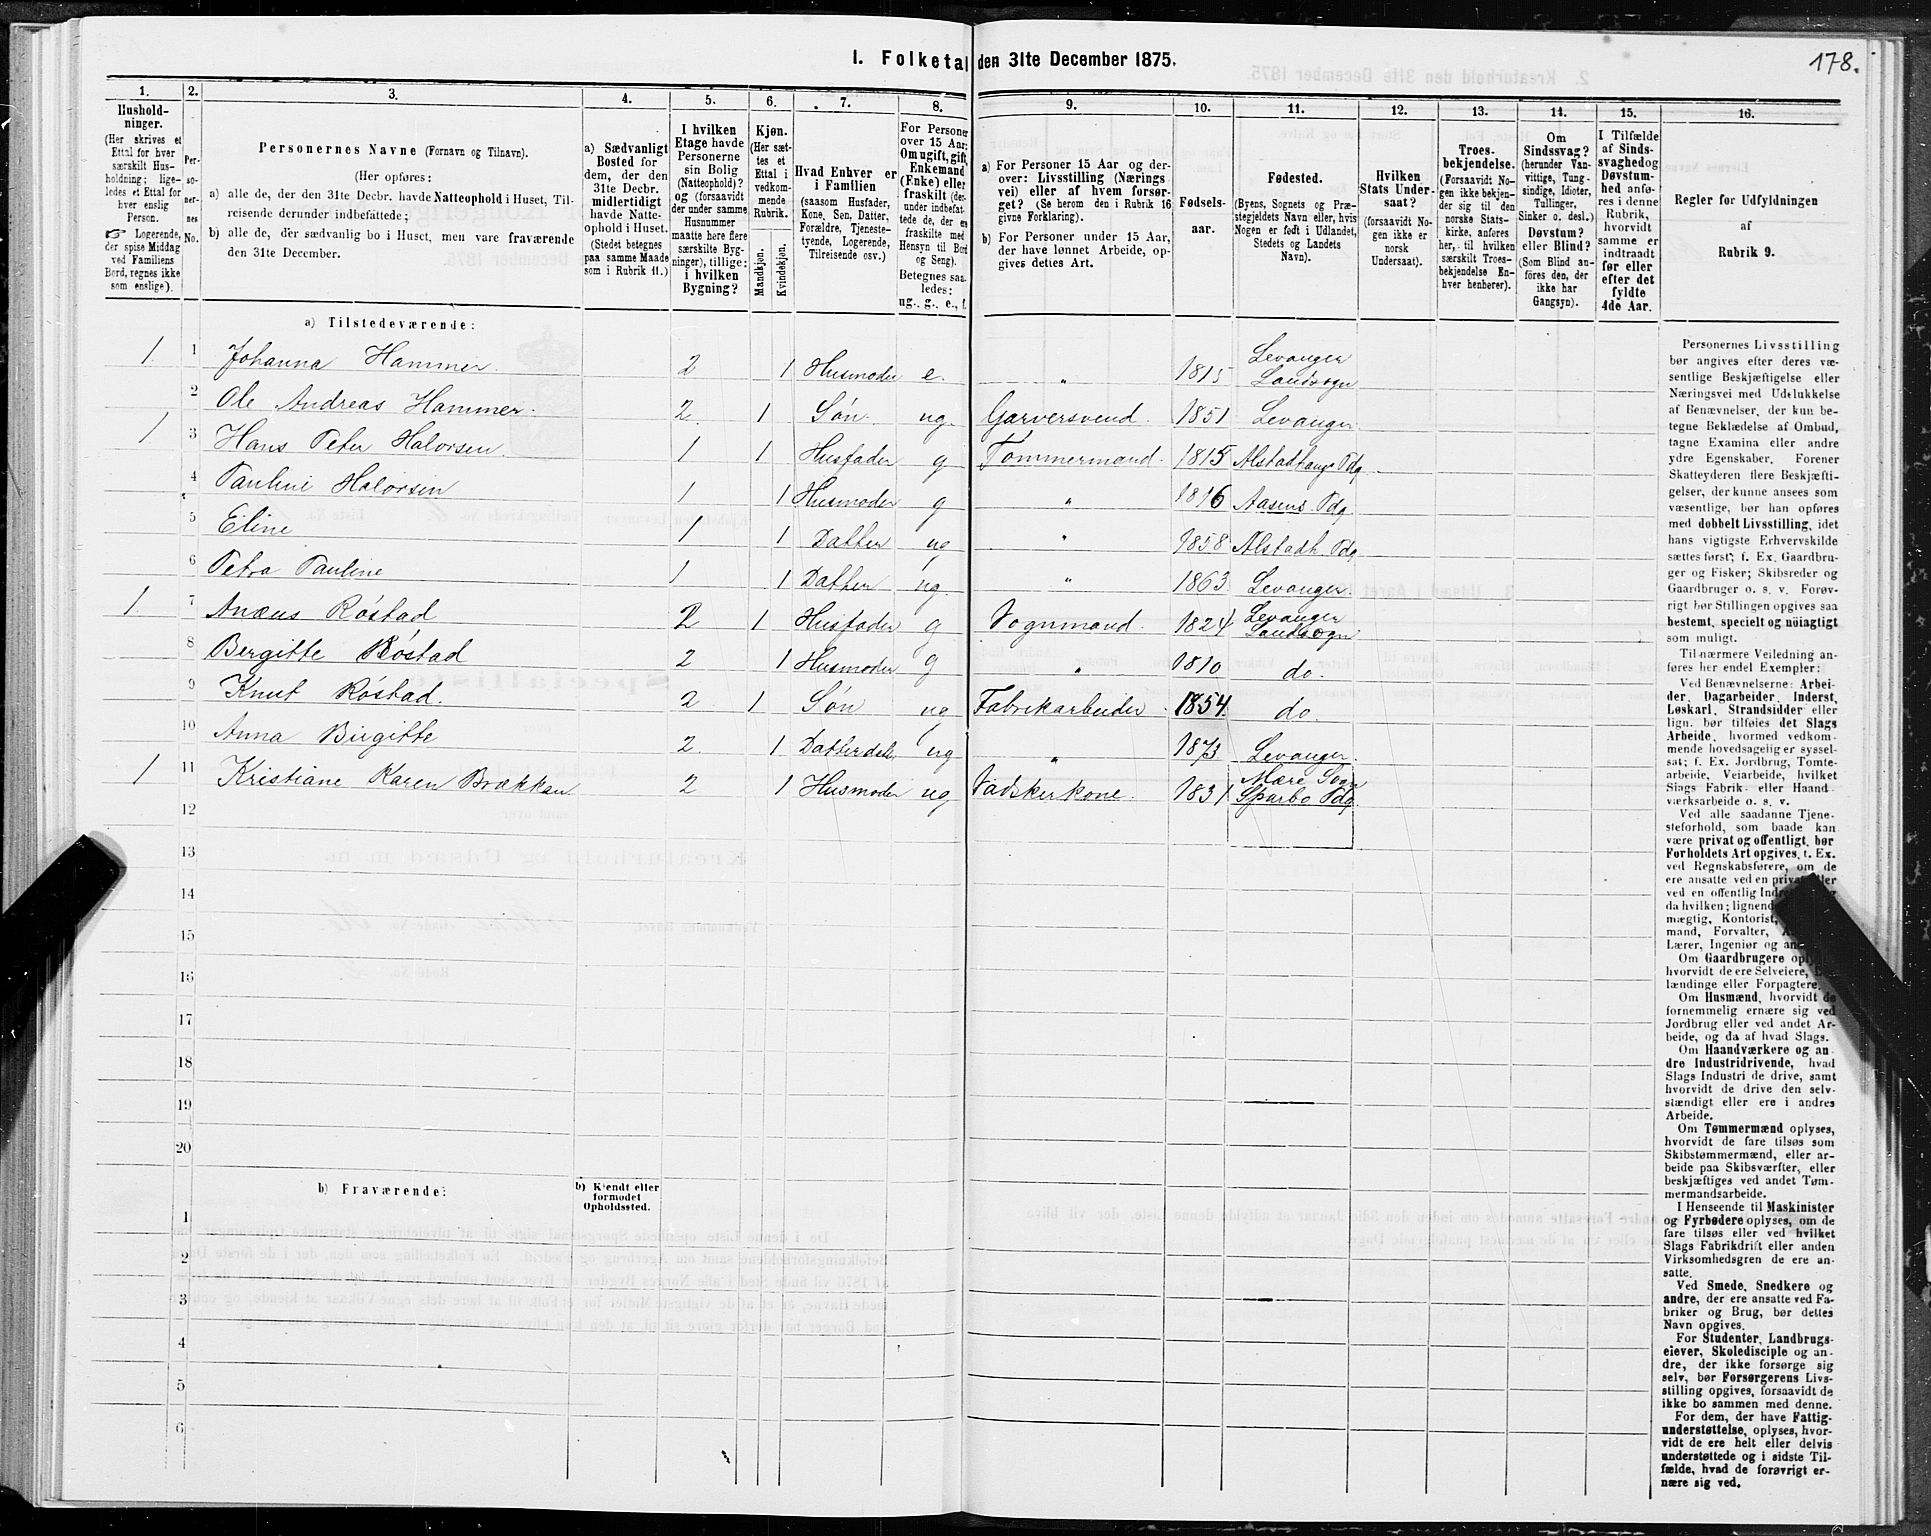 178.
I. Folketal den 31te December 1875.
1.
Hushold-
ninger.
(Her skrives et
Ettal for hver
særskilt Hus-
holdning; lige-
ledes et Ettal for
hver enslig
Person.
☞ Logerende,
der spise Middag
ved Familiens
Bord, regnes ikke
som enslige).
2.
Per-
so-
ner-
nes
No.
3.
Personernes Navne (Fornavn og Tilnavn).
(Her opføres:
a) alle de, der den 31te Decbr. havde Natteophold i Huset, Til-
reisende derunder indbefattede;
b) alle de, der sædvanlig bo i Huset, men vare fraværende
den 31te December.
4.
a) Sædvanligt
Bosted for
dem, der den
31te Decbr.
midlertidigt
havde Natte-
ophold i Huset.
(Stedet betegnes
paa samme Maade
som i Rubrik 11.)
5.
I hvilken
Etage havde
Personerne
sin Bolig
(Natteophold)?
og (forsaavidt
der under samme
Husnummer
maatte here flere
særskilte Byg-
ninger), tillige:
i hvilken
Bygning?
6.
Kjøn.
(Her sæt-
tes et
Ettal i
vedkom-
mende
Rubrik.
Mandkjøn.
Kvindekjøn.
7.
Hvad Enhver er
i Familien
(saasom Husfader,
Kone, Søn, Datter,
Forældre, Tjeneste-
tyende, Logerende,
Tilreisende osv.)
8.
For Personer
over 15 Aar:
Om ugift, gift,
Enkemand
(Enke) eller
fraskilt (der-
under indbefat-
tede de, der ere
fraskilte med
Hensyn til Bord
og Seng).
Betegnes saa-
ledes:
ug., g., e., f.
9.
a) For Personer 15 Aar og der-
over: Livsstilling (Nærings-
vei) eller af hvem forsør-
get? (Se herom den i Rubrik 16
givne Forklaring).
b) For Personer under 15 Aar,
der have lønnet Arbeide, op-
gives dettes Art.
10.
Fødsels-
aar.
11.
Fødested.
(Byens, Sognets og Præ-
stegjeldets Navn eller, hvis
Nogen er født i Udlandet,
Stedets og Landets
Navn).
12.
Hvilken
Stats Under-
saat?
(forsaavidt No-
gen ikke er
norsk
Undersaat).
13.
Troes-
bekjendelse.
(Forsaavidt No-
gen ikke bekjen-
der sig til den
norske Stats-
kirke, anføres
her, til hvilken
særskilt Troes-
bekjendelse En-
hver henhører).
14.
Om
Sindssvag?
(herunder Van-
vittige, Tung-
sindige, Idioter,
Tullinger,
Sinker o. desl.)
Døvstum?
eller Blind?
(Som Blind an-
føres den, der
ikke har
Gangsyn).
15.
I Tilfælde
af Sinds-
svaghed og
Døvstum-
hed anfø-
res i denne
Rubrik,
hvorvidt
samme er
indtraadt
før eller
efter det
fyldte
4de Aar.
16.
Regler for Udfyldningen
af
Rubrik 9.
a) Tilstedeværende:
1 1 Johanna Hammer. 2 1 Husmoder e. " 1815 Levanger Landsogn
2 Ole Andreas Hammer. 2. 1 Søn. ug. Garversvend. 1851 Levanger.
1 3 Hans Peter Halorsen. 1 1 Husfader g Tømmermand. 1815 Alstadhaugs Pdg
4 Pauline Halorsen 1 1 Husmoder g " 1816 Aasens Pdg.
5 Eline 1 1 Datter ug " 1858 Alstadh. Pdg
6 Petra Pauline 1 1 Datter ug. " 1863 Levanger.
1 7 Anæus Röstad 2 1 Husfader g Vognmand. 1824 Levanger Landsogn
8 Bergitte Röstad 2 1 Husmoder g " 1810 do.
9 Knut Röstad. 2 1 Søn ug Fabrikarbeider. 1854. do.
10 Anna Birgitte 2. 1 Datterdatter ug " 1873 Levanger.
1 11 Kristiane Karen Brækkan 2 1 Husmoder ug Vadskerkone. 1831 Mære Sogn Sparbo Pdg.
12
13
14
15
16
17
18
19
20
b) Fraværende:
b) Kjendt eller
formodet
Opholdssted.
1
2
3
4
5
6
Personernes Livsstilling
bør angives efter deres væ-
sentlige Beskjæftigelse eller
Næringsvei med Udelukkelse
af Benævnelser, der kun be-
tegne Beklædelse af Ombud,
tagne Examina eller andre
ydre Egenskaber. Forener
Skatteyderen flere Beskjæfti-
gelser, der kunne ansees som
væsentlige, bør han opføres
med dobbelt Livsstilling, idet
hans vigtigste Erhvervskilde
sættes først; f. Ex. Gaardbru-
ger og Fisker; Skibsreder og
Gaardbruger o. s. v. Forøv-
rigt bør Stillingen opgives saa
bestemt, specielt og nöiagtigt
som muligt.
Til nærmere Veiledning an-
føres her endel Exempler:
Ved Benævnelserne: Arbei-
der, Dagarbeider, Inderst,
Løskarl, Strandsidder eller
lign. bør tilføies det Slags
Arbeide, hvormed vedkom-
mende hovedsagelig er syssel-
sat; f. Ex. Jordbrug, Tomte-
arbeide, Veiarbeide, hvilket
Slags Fabrik- eller Haand-
værksarbeide o. s. v.
Ved alle saadanne Tjene-
steforhold, som baade kan
være privat og offentligt, bør
Forholdets Art opgives, t. Ex.
ved Regnskabsførere, om de
ere ansatte ved en privat eller
ved en offentlig
da hvilken; lignende
mægtig, Kontorist,
mand, Forvalter,
Lærer, Ingeniør og
Om Gaardbrugere
hvorvidt de ere Selveiere,
lændinge eller Forpagtere.
Om Husmænd, hvorvidt de
fornemmelig ernære sig ved
Jordbrug eller ved andet Ar-
beide, og da af hvad Slags.
Om Haandværkere og an-
dre Industridrivende, hvad
Slags Industri de drive, samt
hvorvidt de drive den selv-
stændigt eller ere i andres
Arbeide.
Om Tømmermænd oplyses,
hvorvidt de fare tilsøs som
Skibstømmermænd, eller ar-
beide paa Skibsværfter, eller
beskjæftiges ved andet Tøm-
mermandsarbeide.
I Henseende til Maskinister
og Fyrbødere oplyses, om de
fare tilsøs eller ved hvilket
Slags Fabrikdrift eller anden
Virksomhedsgren de ere an-
satte.
Ved Smede, Snedkere og
andre, der ere ansatte ved Fa-
briker og Brug, bør dettes
Navn opgives.
For Studenter, Landbrugs-
eiever, Skoledisciple og an-
dre, der ikke forsørge sig
selv, bør Forsørgerens Livs-
stilling opgives, forsaavidt de
ikke bo sammen med denne.
For dem, der have Fattig-
understøttelse, oplyses, hvor-
vidt de ere helt eller delvis
understøttede og i sidste Til-
fælde, hvad de forøvrigt er-
nære sig ved.